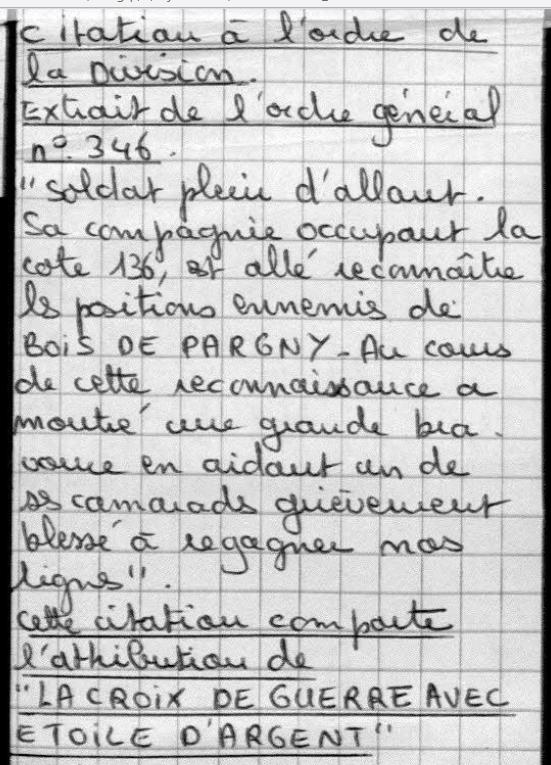 citation à l'ordre de
la Division.
Extrait de l'ordre général
n°. 346.
"soldat plein d'allant.
Sa compagnie occupant la
cote 136, est allé reconnaître
les positions ennemis de
BOIS DE PARGNY - Au cours
de cette reconnaissance a
montré une grande bra-
voure en aidant un de
ses camarads grièvement
blessé à regagner nos
lignes".
cette citation comporte
l'attribution de
"LA CROIX DE GUERRE AVEC
ETOILE D'ARGENT"